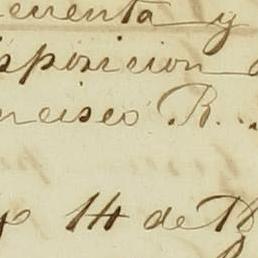 cuenta y
sposicion
ncisco R.
14 de